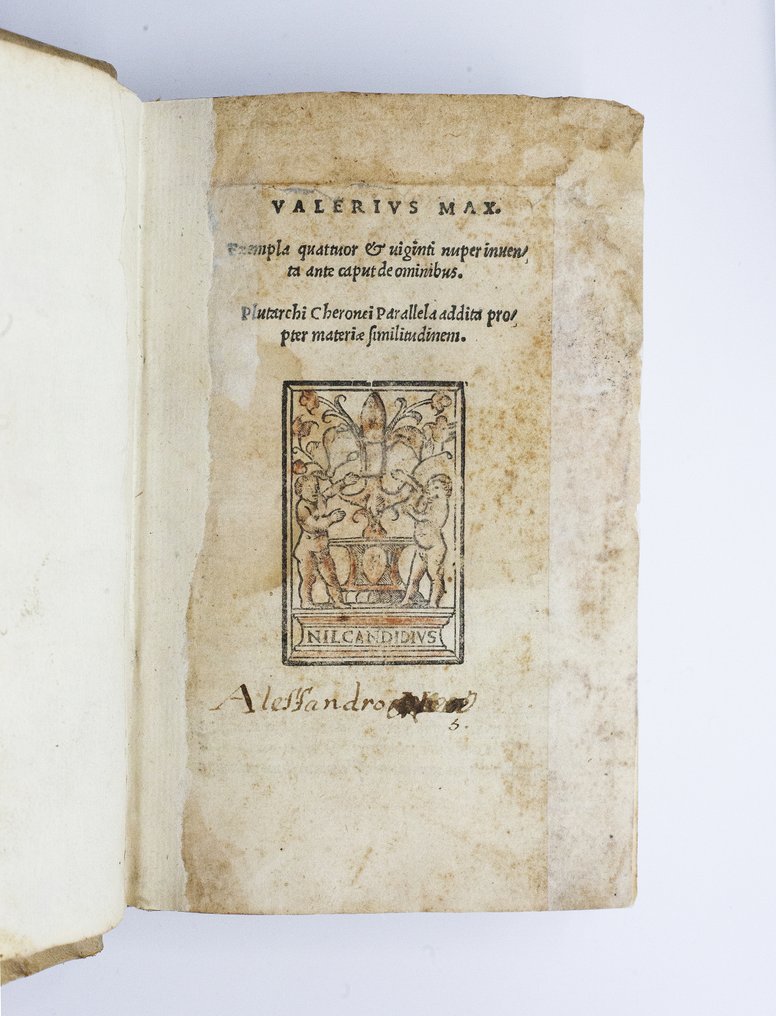 VALERIVS MAX.
Exempla quattuor & uiginti nuper inuen/
ta ante caput de ominibus.
Plutarchi Cheronei Parallela addita pro/
pter materiæ similitudinem.
NIL CANDIDIVS
Alessandro
s.